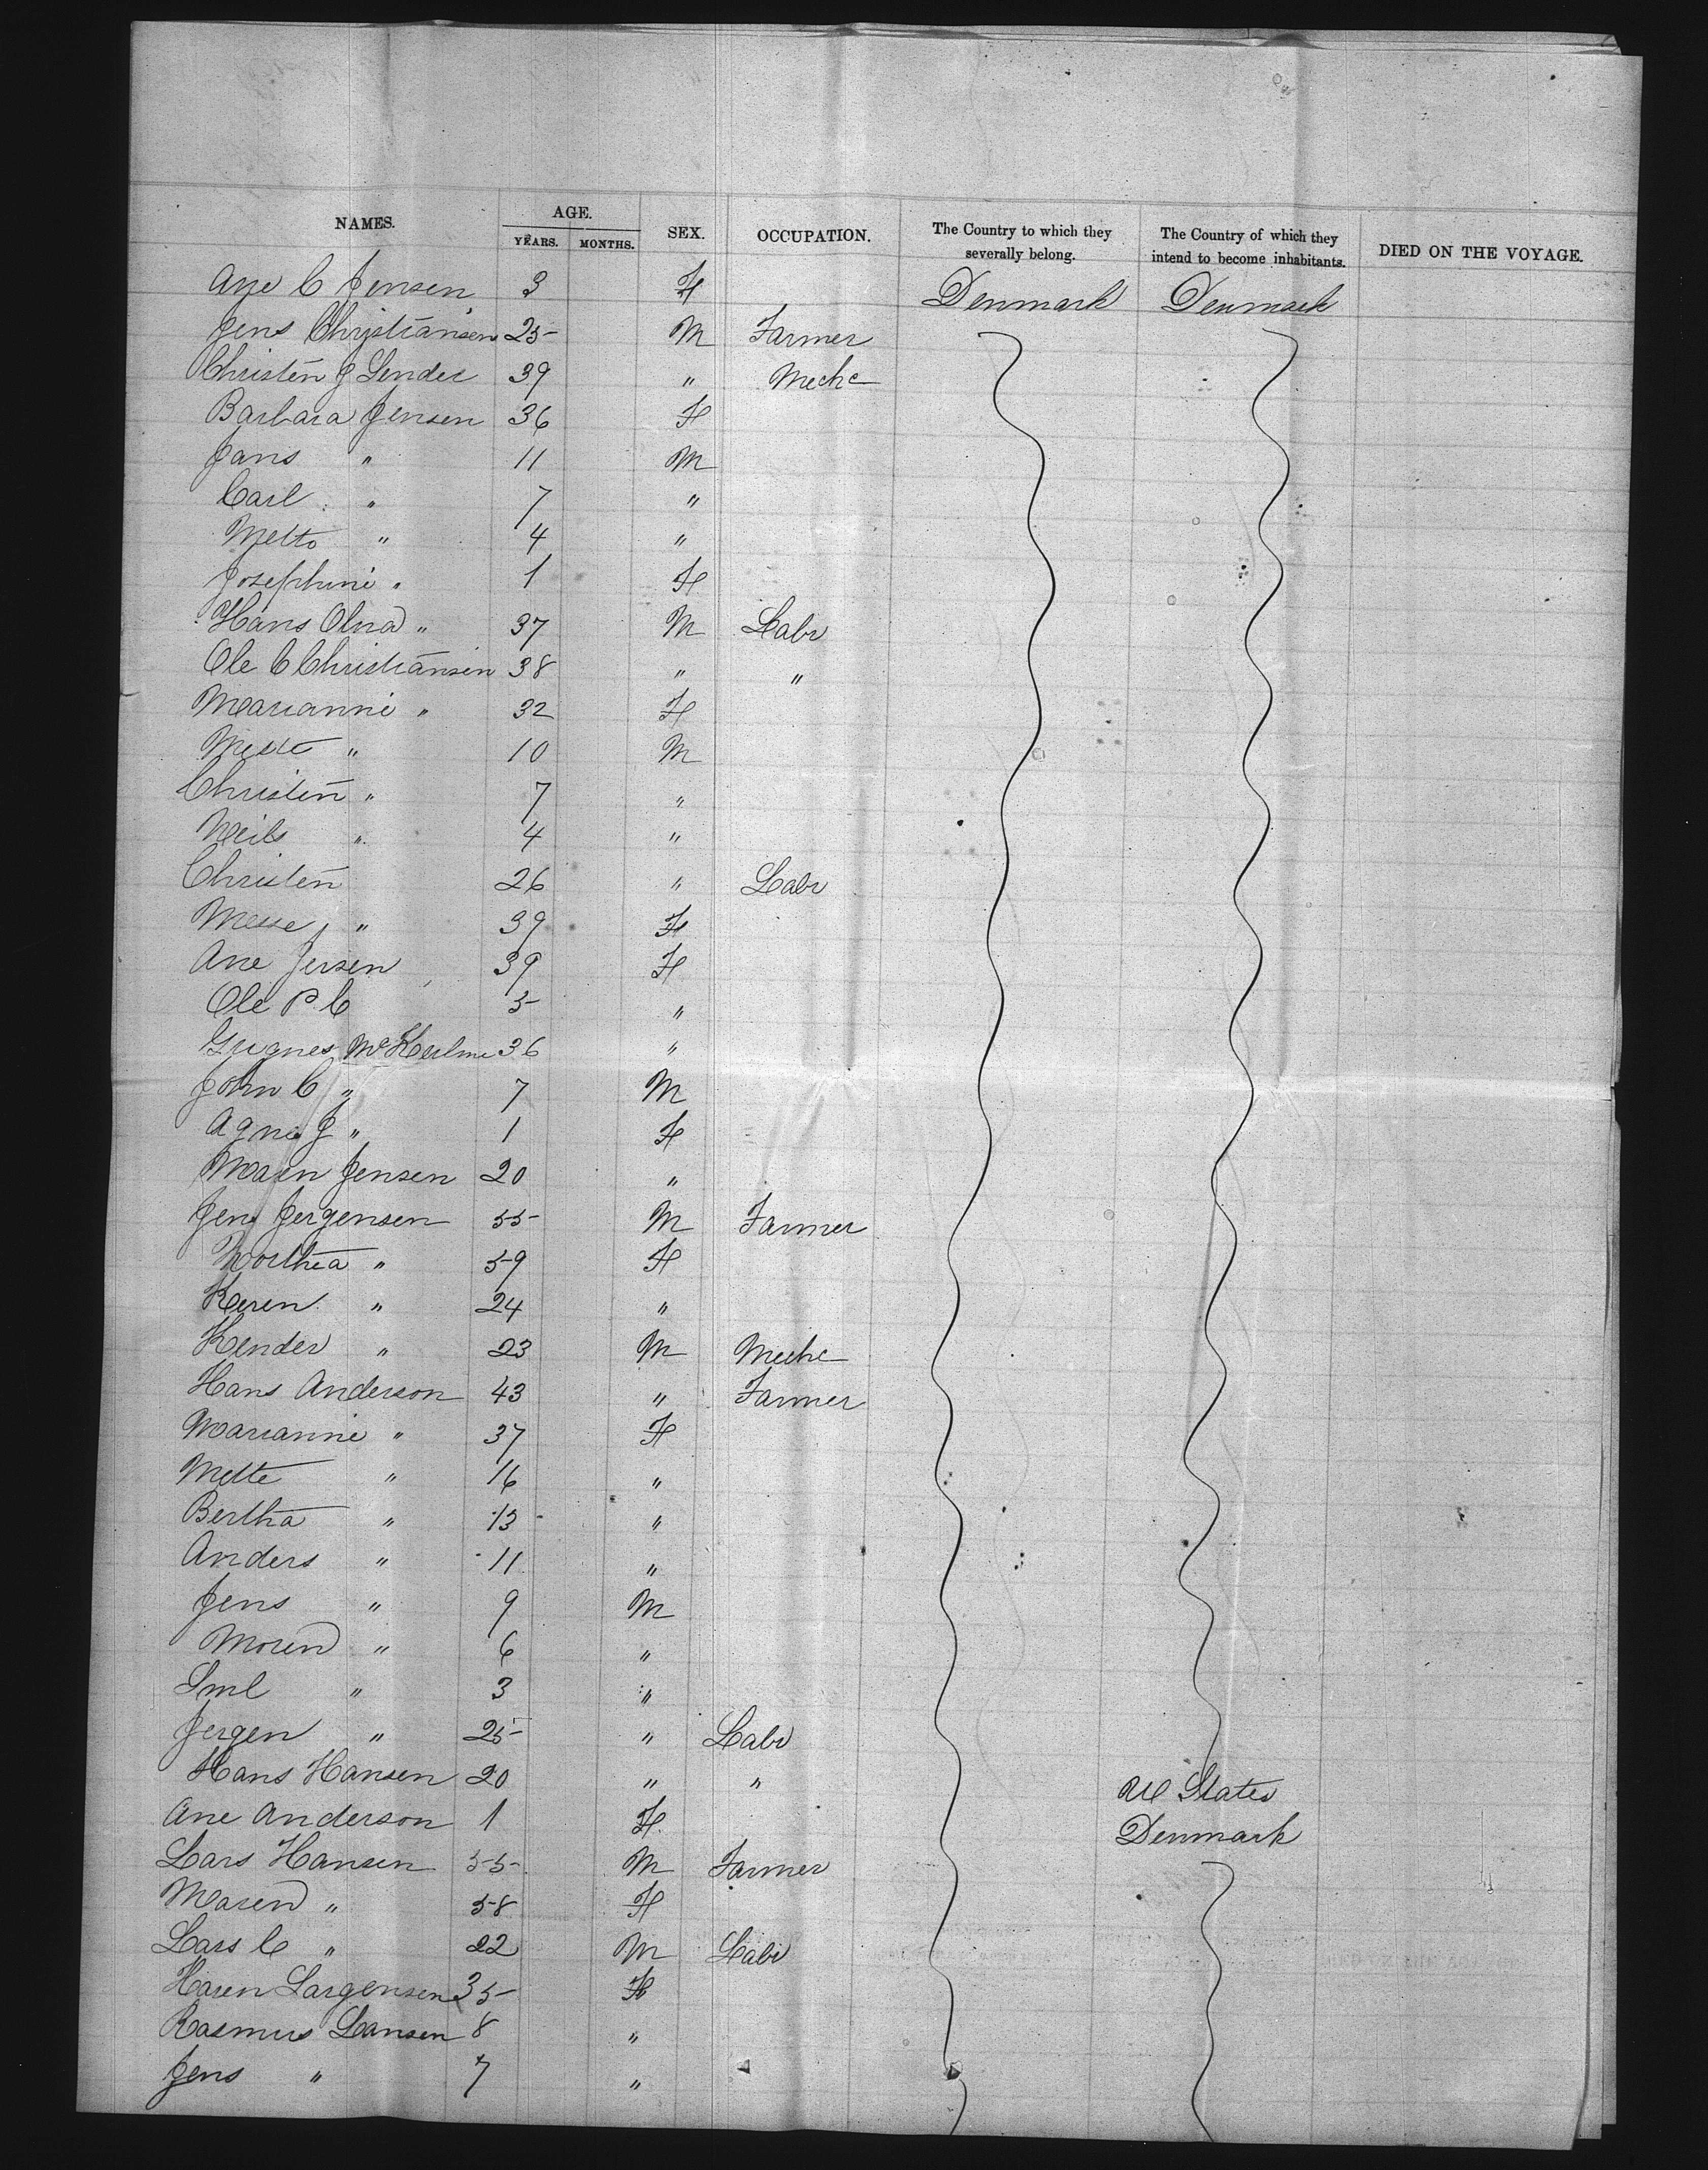 NAMES. AGE. YEARS. MONTHS. SEX. OCCUPATION. The Country to which they severally belong. The Country of which they intend to become inhabitants. DIED ON THE VOYAGE.
Ane C Jensen 3 F Denmark Denmark
Jens Christiansen 25 M Farmer
Christen J Lender 39 " Mechc
Barbara Jensen 36 F
Jans " 11 M
Carl " 7 "
Metto " 4 "
Josephini " 1 F
Hans Olna " 37 M Labr
Ole C Christiansin 38 " "
Marianni " 32 F
" 10 M
Christen " 7 "
Neils " 4 "
Christen 26 " Labr
Messe " 39 F
Ane Jersen 39 F
Ole P. C 5 "
Mc 36 "
John C " 7 M
Agne J " 1 F
Maren Jensen 20 "
Jens Jergensen 55 M Farmer
Northea " 59 F
Keren " 24 "
Kender " 23 M Mechc
Hans Anderson 43 " Farmer
Marianni " 37 F
Mette " 16 "
Bertha " 13 "
Anders " 11 "
Jens " 9 M
Moren " 6 "
" 3 "
Jergen " 25 " Labr
Hans Hansen 20 " " U States
Ane Anderson 1 F Denmark
Lars Hansen 55 M Farmer
Maren " 58 F
Lars C " 22 M Labr
Haren Largensen 35 F
Rasmus Lansen 8 "
Jens " 7 "